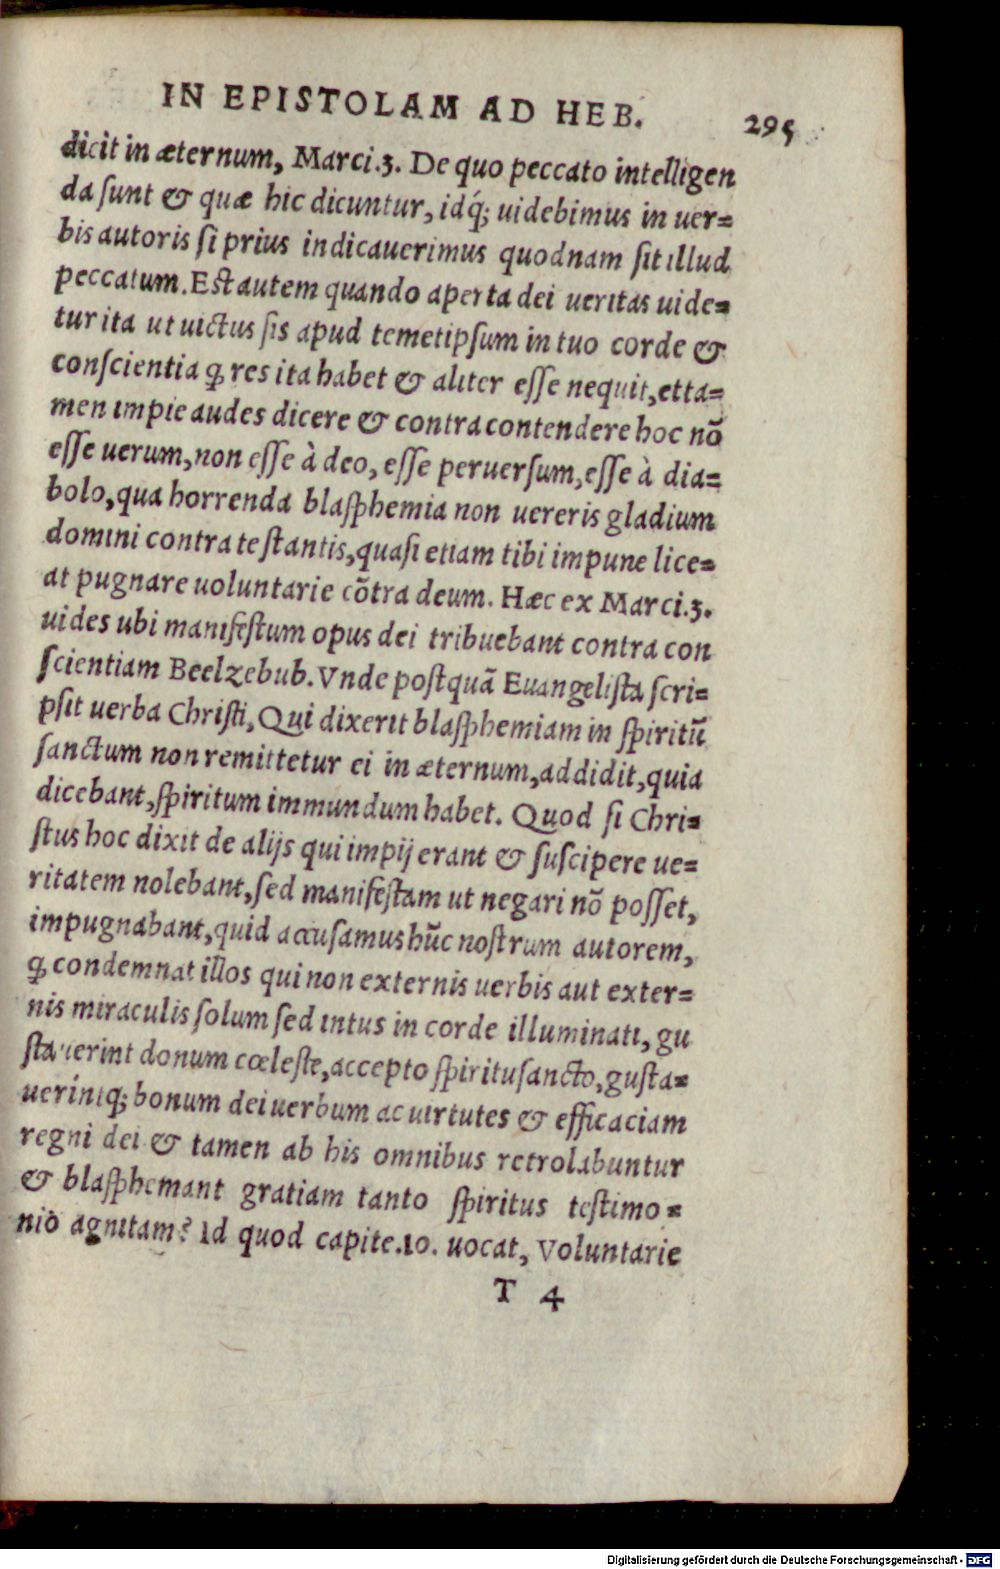 IN EPISTOLAM AD HEB. 295
dicit in æternum, Marci.3. De quo peccato intelligen
da sunt & quæ hic dicuntur, idq́; uidebimus in uer=
bis autoris si prius indicauerimus quodnam sit illud
peccatum. Est autem quando aperta dei ueritas uide=
tur ita ut uictus sis apud temetipsum in tuo corde &
conscientia ꝙ res ita habet & aliter esse nequit, etta=
men impie audes dicere & contra contendere hoc nõ
esse uerum, non esse à deo, esse peruersum, esse à dia=
bolo, qua horrenda blasphemia non uereris gladium
domini contra te stantis, quasi etiam tibi impune lice=
at pugnare uoluntarie cõtra deum. Hæc ex Marci.3.
uides ubi manifestum opus dei tribuebant contra con
scientiam Beelzebub. Vnde postquã Euangelista scri=
psit uerba Christi, Qui dixerit blasphemiam in spiritũ
sanctum non remittetur ei in æternum, addidit, quia
dicebant, spiritum immundum habet. Quod si Chri=
stus hoc dixit de alijs qui impij erant & suscipere ue=
ritatem nolebant, sed manifestam ut negari nõ posset,
impugnabant, quid accusamus hũc nostrum autorem,
ꝙ condemnat illos qui non externis uerbis aut exter=
nis miraculis solum sed intus in corde illuminati, gu
stauerint donum cœleste, accepto spiritusancto, gusta=
uerintq́; bonum dei uerbum ac uirtutes & efficaciam
regni dei & tamen ab his omnibus retrolabuntur
& blasphemant gratiam tanto spiritus testimo=
nio agnitam? Id quod capite.10. uocat, Voluntarie
T 4
Digitalisierung gefördert durch die Deutsche Forschungsgemeinschaft - DFG